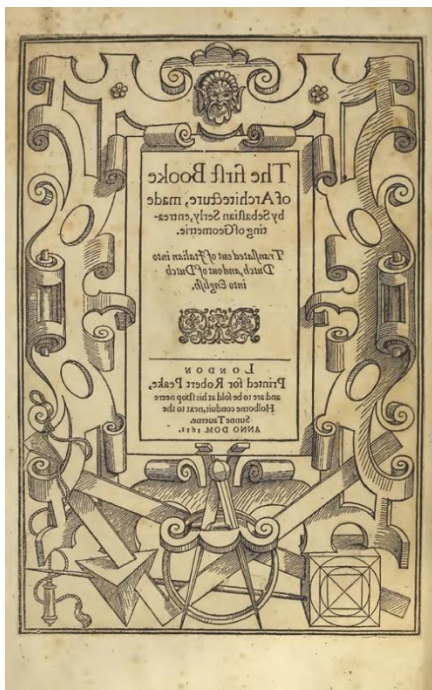 The firſt Booke
of Architecture, made
by Sebaſtian Serly, entrea-
ting of Geometrie.
Tranſlated out of Italian into
Dutch, and out of Dutch
into Engliſh.
LONDON
Printed for Robert Peake,
and are to be ſold at his ſhop neere
Holborne conduit, next to the
Sunne Tauerne.
ANNO DOM. 1611.